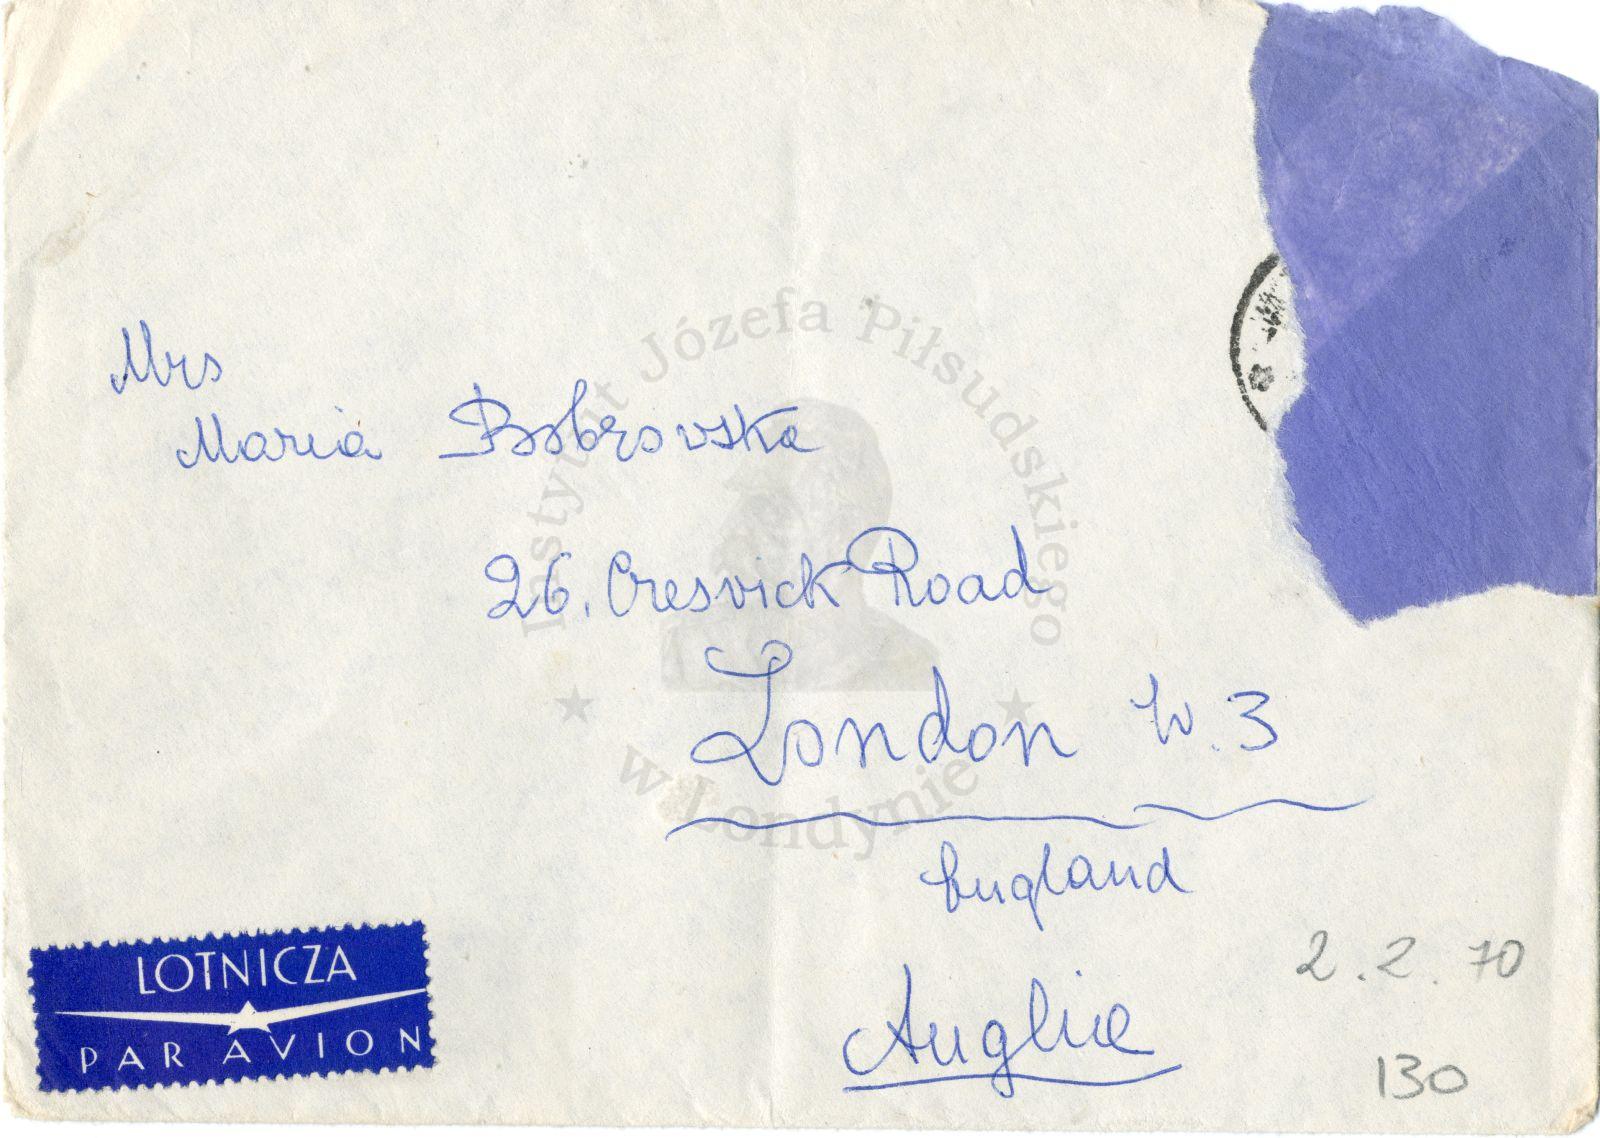 Mrs
Maria Bobrovska
26. Cresvick Road
London W. 3
England
Anglia
2.2.70
130
LOTNICZA
PAR AVION
Instytut Józefa Piłsudskiego
w Londynie